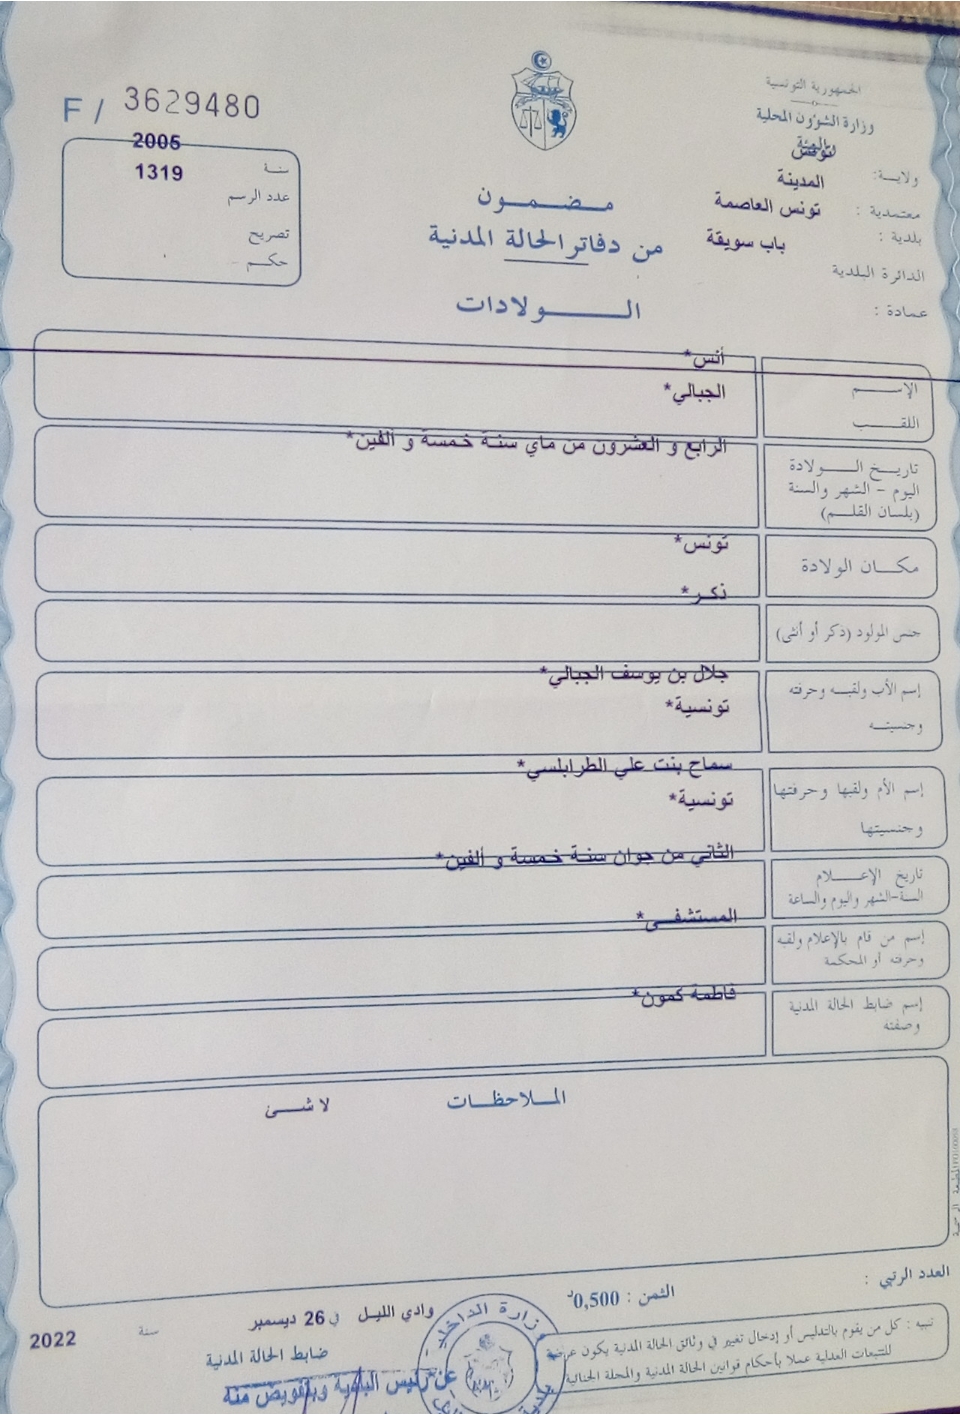 F / 3629480
الجمهورية التونسية
وزارة الشؤون المحلية
والبيئة
ولاية: تونس
معتمدية : المدينة
بلدية : تونس العاصمة
الدائرة البلدية باب سويقة
عمادة :
سنة 2005
عدد الرسم 1319
تصريح
حكم
مضمون
من دفاتر الحالة المدنية
الولادات
الإسم أنس*
اللقب الجبالي*
تاريخ الولادة
اليوم - الشهر والسنة
(بلسان القلم)
الرابع و العشرون من ماي سنة خمسة و ألفين*
مكان الولادة تونس*
جنس المولود (ذكر أو أنثى) ذكر*
إسم الأب ولقبه وحرفته جلال بن يوسف الجبالي*
وجنسيته تونسية*
إسم الأم ولقبها وحرفتها سماح بنت علي الطرابلسي*
وجنسيتها تونسية*
تاريخ الإعلام
السنة-الشهر واليوم والساعة
الثاني من جوان سنة خمسة و ألفين*
إسم من قام بالإعلام ولقبه
وحرفته أو المحكمة
المستشفى*
إسم ضابط الحالة المدنية
وصفته
فاطمة كمون*
الملاحظات لا شئ
العدد الرتبي :
الثمن : 0,500د
وادي الليل في 26 ديسمبر سنة 2022
ضابط الحالة المدنية
عن رئيس البلدية وبتفويض منه
وزارة الداخلية
تنبيه : كل من يقوم بالتدليس أو إدخال تغيير في وثائق الحالة المدنية يكون عرضة
للتتبعات العدلية عملا بأحكام قوانين الحالة المدنية والمجلة الجنائية